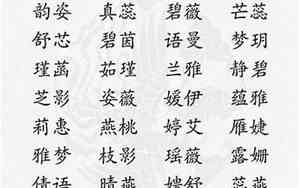 韵姿 真蕊 碧薇 芒蕊
舒芯 碧茵 语曼 梦玥
瑾菡 茹瑾 兰雅 静碧
芝影 姿薇 媛伊 蕴雅
莉惠 燕桃 婷艾 雁婕
雅梦 枝影 瑶薇 露姗
倩语 晴燕 嫦舒 蕊燕